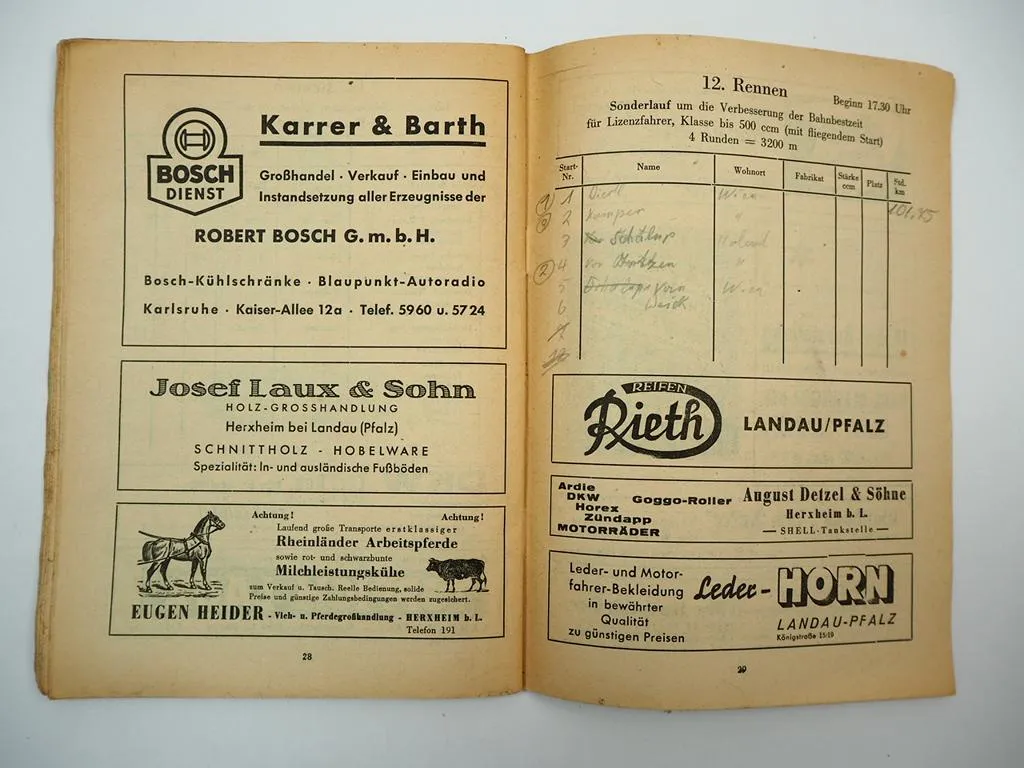 BOSCH
DIENST
Karrer & Barth
Großhandel · Verkauf · Einbau und
Instandsetzung aller Erzeugnisse der
ROBERT BOSCH G.m.b.H.
Bosch-Kühlschränke · Blaupunkt-Autoradio
Karlsruhe · Kaiser-Allee 12a · Telef. 5960 u. 5724
Josef Laux & Sohn
HOLZ-GROSSHANDLUNG
Herxheim bei Landau (Pfalz)
SCHNITTHOLZ - HOBELWARE
Spezialität: In- und ausländische Fußböden
Achtung! Achtung!
Laufend große Transporte erstklassiger
Rheinländer Arbeitspferde
sowie rot- und schwarzbunte
Milchleistungskühe
zum Verkauf u. Tausch. Reelle Bedienung, solide
Preise und günstige Zahlungsbedingungen werden zugesichert.
EUGEN HEIDER - Vieh- u. Pferdegroßhandlung - HERXHEIM b. L.
Telefon 191
28
12. Rennen
Beginn 17.30 Uhr
Sonderlauf um die Verbesserung der Bahnbestzeit
für Lizenzfahrer, Klasse bis 500 ccm (mit fliegendem Start)
4 Runden = 3200 m
Start-Nr. Name Wohnort Fabrikat Stärke ccm Platz Std. km
1 Wien 101.85
2 Kamper "
3
2 4 von "
5 Wien
6
REIFEN
Rieth
LANDAU/PFALZ
Ardie
DKW
Horex
Zündapp
MOTORRÄDER
Goggo-Roller
August Detzel & Söhne
Herxheim b. L.
— SHELL-Tankstelle —
Leder- und Motor-
fahrer-Bekleidung
in bewährter
Qualität
zu günstigen Preisen
Leder-HORN
LANDAU-PFALZ
Königstraße 15/19
29